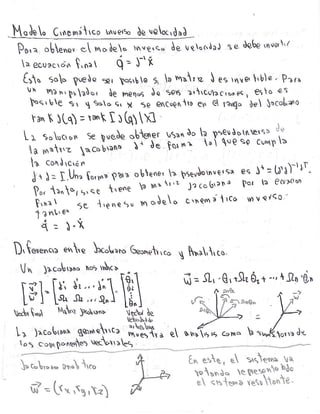 Modelo Cinemático inverso de velocidad
Para obtener el modelo inverso de velocidad se debe invertir
la ecuación final q̇ = J⁻¹ẋ
Esto solo puede ser posible si la matriz J es invertible. Para
un manipulador de menos de seis articulaciones, esto es
posible si y solo si ẋ se encuentra en el rango del Jacobiano
rank J(q) = rank [J(q)|ẋ]
La solución se puede obtener usando la pseudoinversa de
la matriz Jacobiana J⁺ de forma tal que se cumpla
la condición
J⁺J = I. Una forma para obtener la pseudoinversa es J⁺ = (JᵀJ)⁻¹Jᵀ.
Por tanto, si se tiene la matriz Jacobiana por la ecuación
final se tiene su modelo cinemático inverso.
q̇ = J⁺Ẋ
Diferencia entre Jacobiano Geométrico y Analítico.
Un Jacobiano nos indica
[v w] = [J1 J2 ... Jn Ω1 Ω2 ... Ωn] [θ̇1 θ̇2 θ̇n]
w⃗ = Ω1·θ̇1+Ω2 θ̇2+...+Ωn·θ̇n
Vector final Matriz Jacobiana Vector de
Velocidades
articulares
=
La Jacobiana geométrica muestra el análisis como la sumatoria de
los componentes vectoriales.
Jacobiano analítico
w⃗ = (rx, ry, rz)
En este, el sistema va
rotando representando
el sistema resultante.